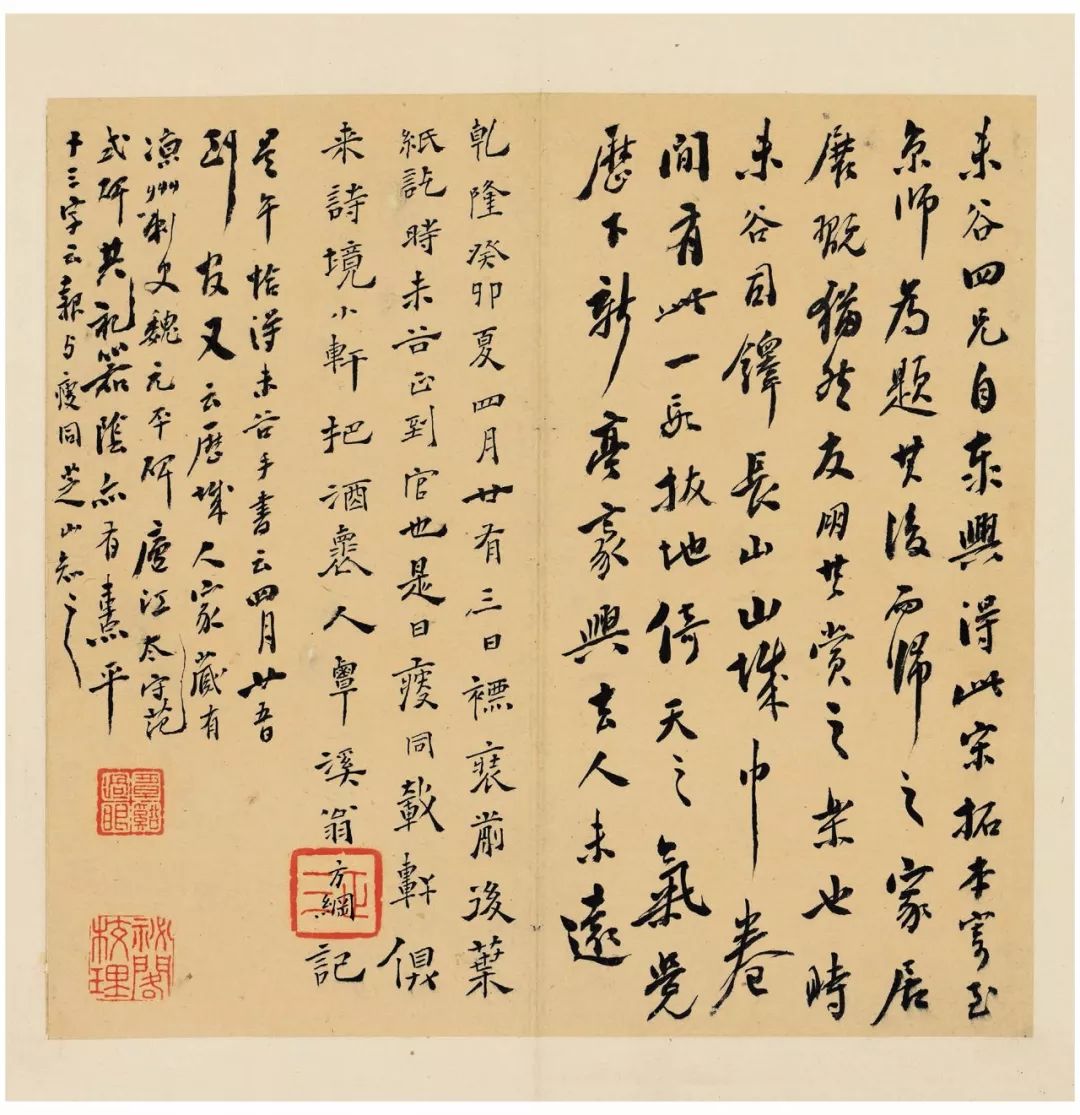 未谷四兄自東興得此宋拓本寄至
京師為題其後而歸之家居
展翫猶然友朋共賞之樂也時
未谷司鐸長山山城巾卷
間有此一段拔地倚天之氣覺
歷下新亭豪興去人未遠
乾隆癸卯夏四月廿有三日褾裱前後葉
紙訖時未谷正到官也是日瘦同載軒俱
来詩境小軒把酒褱人覃溪翁方綱記
是午恰得未谷手書云四月廿五日
到官又云歷城人家藏有
涼州刺史魏元丕碑廬江太守范
式碑其礼器陰亦有熹平
十三字云報与瘦同芝山知之
覃谿過眼
祕閣校理